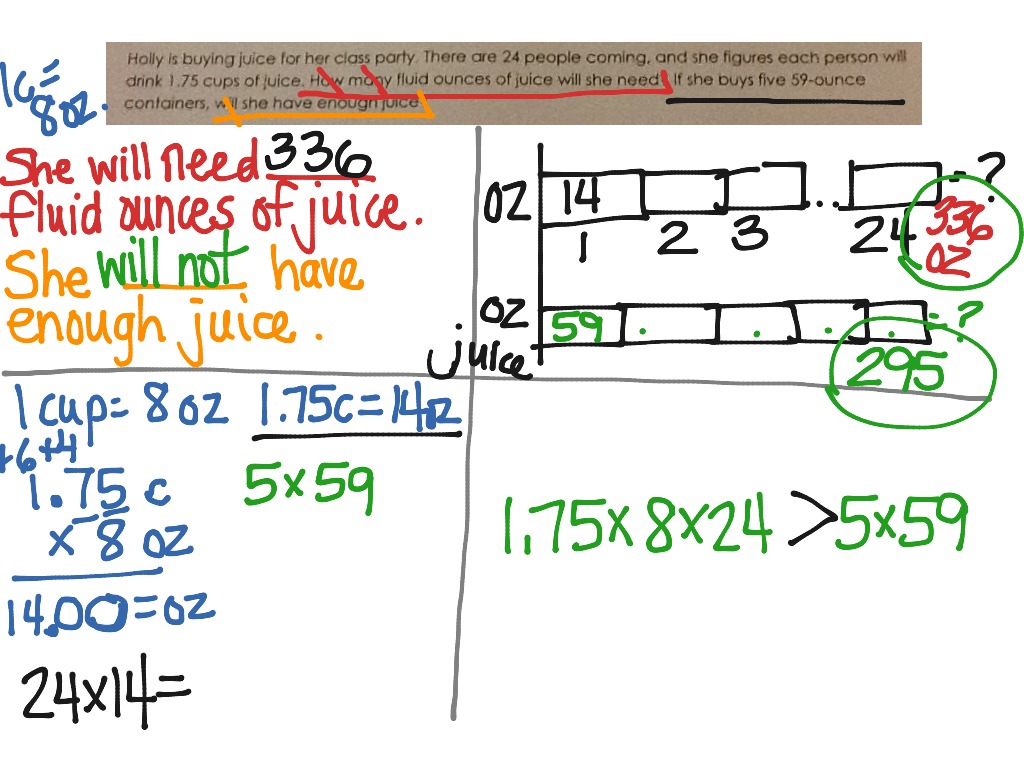 Holly is buying juice for her class party. There are 24 people coming, and she figures each person will
drink 1.75 cups of juice. How many fluid ounces of juice will she need? If she buys five 59-ounce
containers, will she have enough juice?
1c=
8oz.
She will need 336
fluid ounces of juice.
She will not have
enough juice.
oz 14 ... = ?
1 2 3 24
336
oz
oz 59 . . . . = ?
juice
295
1 cup= 8 oz 1.75c=14oz
+6+4
1.75 c
x 8 oz
14.00=oz
24x14=
5x59
1.75x8x24 >5x59